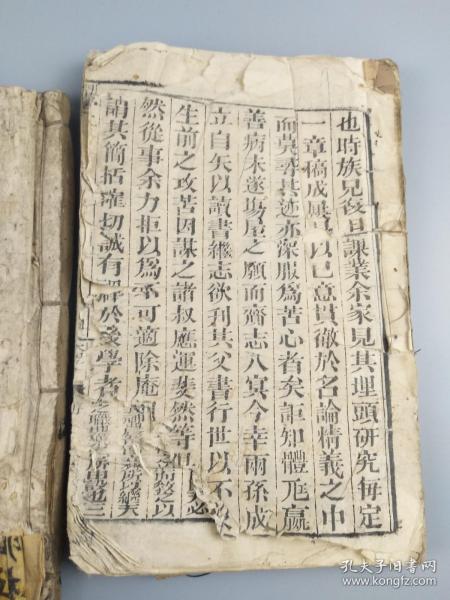 也時族兄復旦課業余家見其埋頭研究每定
一章稿成展以己意貫徹於名論精義之中
而莫尋其迹亦深服爲苦心者矣詎知體尫羸
善病未遂塲屋之願而齎志入冥今幸兩孫成
立自矢以讀書繼志欲刋其父書行世以不沒
生前之攻苦因謀之諸叔應運斐然等但
然從事余力拒以爲不可適除庵
謂其簡括確切誠有裨於後學者
孔夫子旧书网
www.kongfz.com